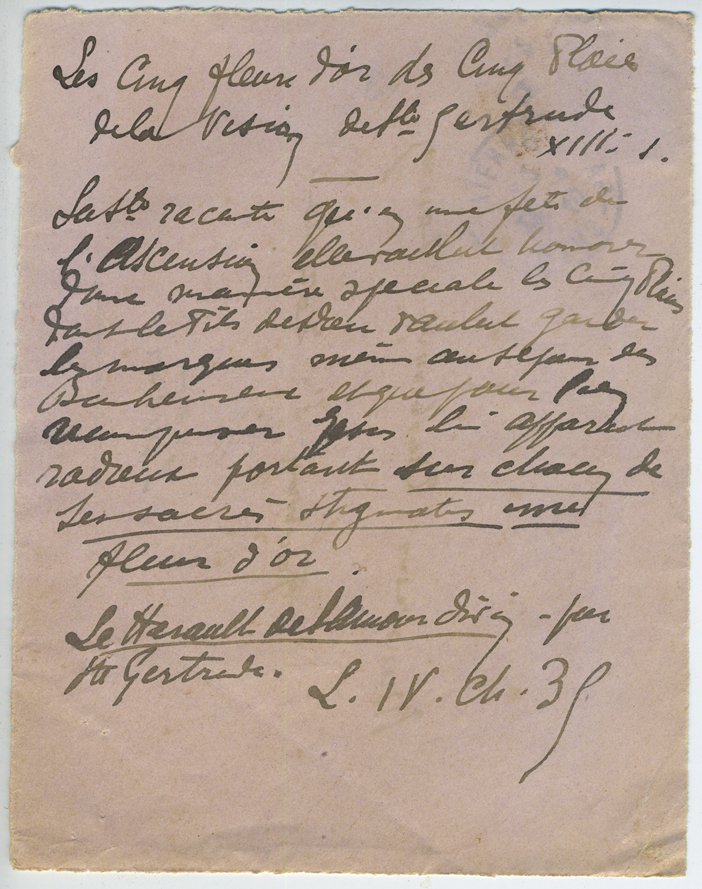 Les Cinq fleurs d'or des Cinq Plaies
de la Vision de Ste Gertrude
XIII s.
La Ste raconte qu'en une fête de
l'Ascension elle voulut honorer
d'une manière speciale les Cinq Plaies
dont le Fils de Dieu voulut garder
les marques même au sejour des
Bienheureux et que pour l'en
recompenser Jesus lui apparut
radieux portant sur chacun de
ses sacrés stigmates une
fleur d'or
Le Herault de l'Amour divin - par
Ste Gertrude.
L. IV. Ch. 35